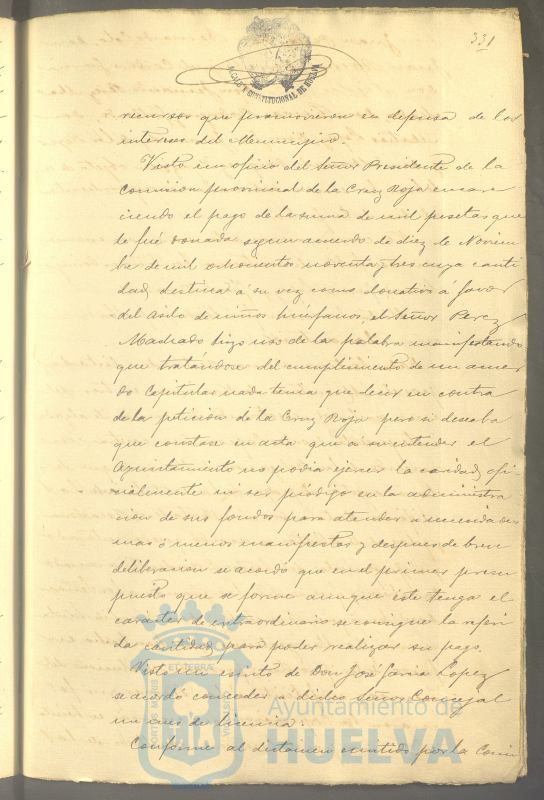 331
ALCALDIA CONSTITUCIONAL DE HUELVA
recursos que promovieron en defensa de los
intereses del Municipio.
Visto un oficio del Señor Presidente de la
Comision provincial de la Cruz Roja encare
ciendo el pago de la suma de mil pesetas que
le fué donada segun acuerdo de diez de Noviem
bre de mil ochocientos noventa y tres cuya canti
dad destina á su vez como donativo á favor
del asilo de niños huérfanos, el Señor Perez
Machado hizo uso de la palabra manifestando
que tratándose del cumplimiento de un acuer
do Capitular nada tenia que decir en contra
de la peticion de la Cruz Roja pero si deseaba
que constase en acta que á su entender el
Ayuntamiento no podia ejercer la caridad ofi
cialmente ni ser pródigo en la administra
cion de sus fondos para atender a necesidades
mas ó menos manifiestas y despues de breve
deliberacion se acordó que en el primer presu
puesto que se forme aunque este tenga el
carácter de extraordinario se consigne la referi
da cantidad para poder realizar su pago.
Visto un escrito de Don José Garcia Lopez
se acordó conceder a dicho Señor Concejal
un mes de licencia.
Conforme al dictamen emitido por la Comi
PORTUS MARIS
ET TERRAE
CUSTODIA
Ayuntamiento de
HUELVA